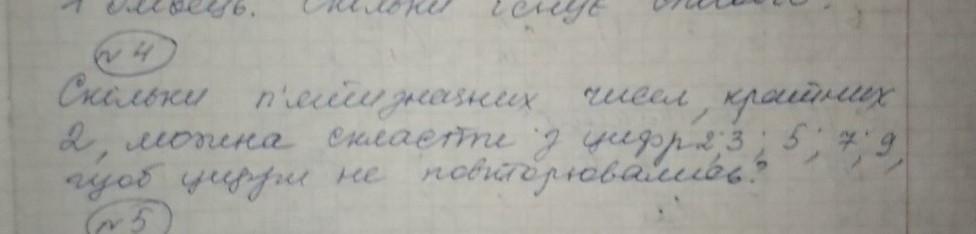 скільки існує
№4
Скільки п'ятизначних чисел, кратних
2, можна скласти з цифр 2; 3; 5; 7; 9,
щоб цифри не повторювались?
№5